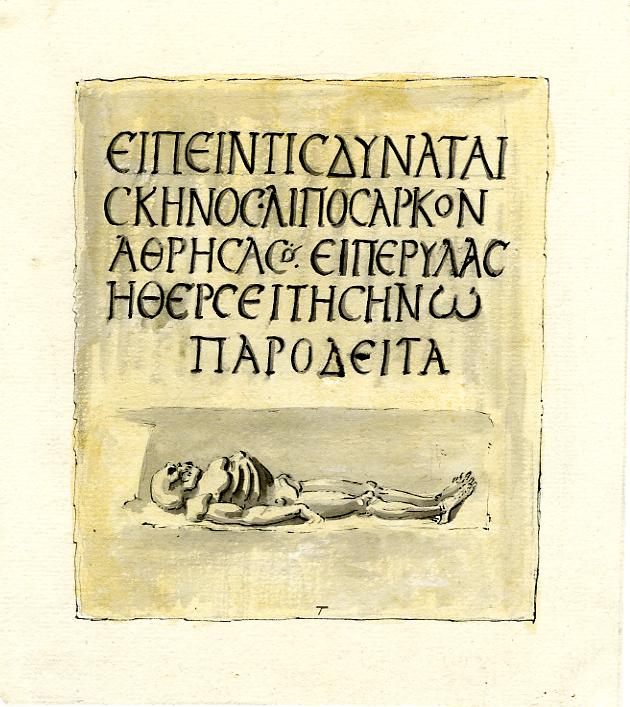 ΕΙΠΕΙΝΤΙϹΔΥΝΑΤΑΙ
ϹΚΗΝΟϹ·ΛΙΠΟϹΑΡΚΟΝ
ΑΘΡΗϹΑϹ. ΕΙΠΕΡΥΛΑϹ
ΗΘΕΡϹΕΙΤΗϹΗΝω
ΠΑΡΟΔΕΙΤΑ
T